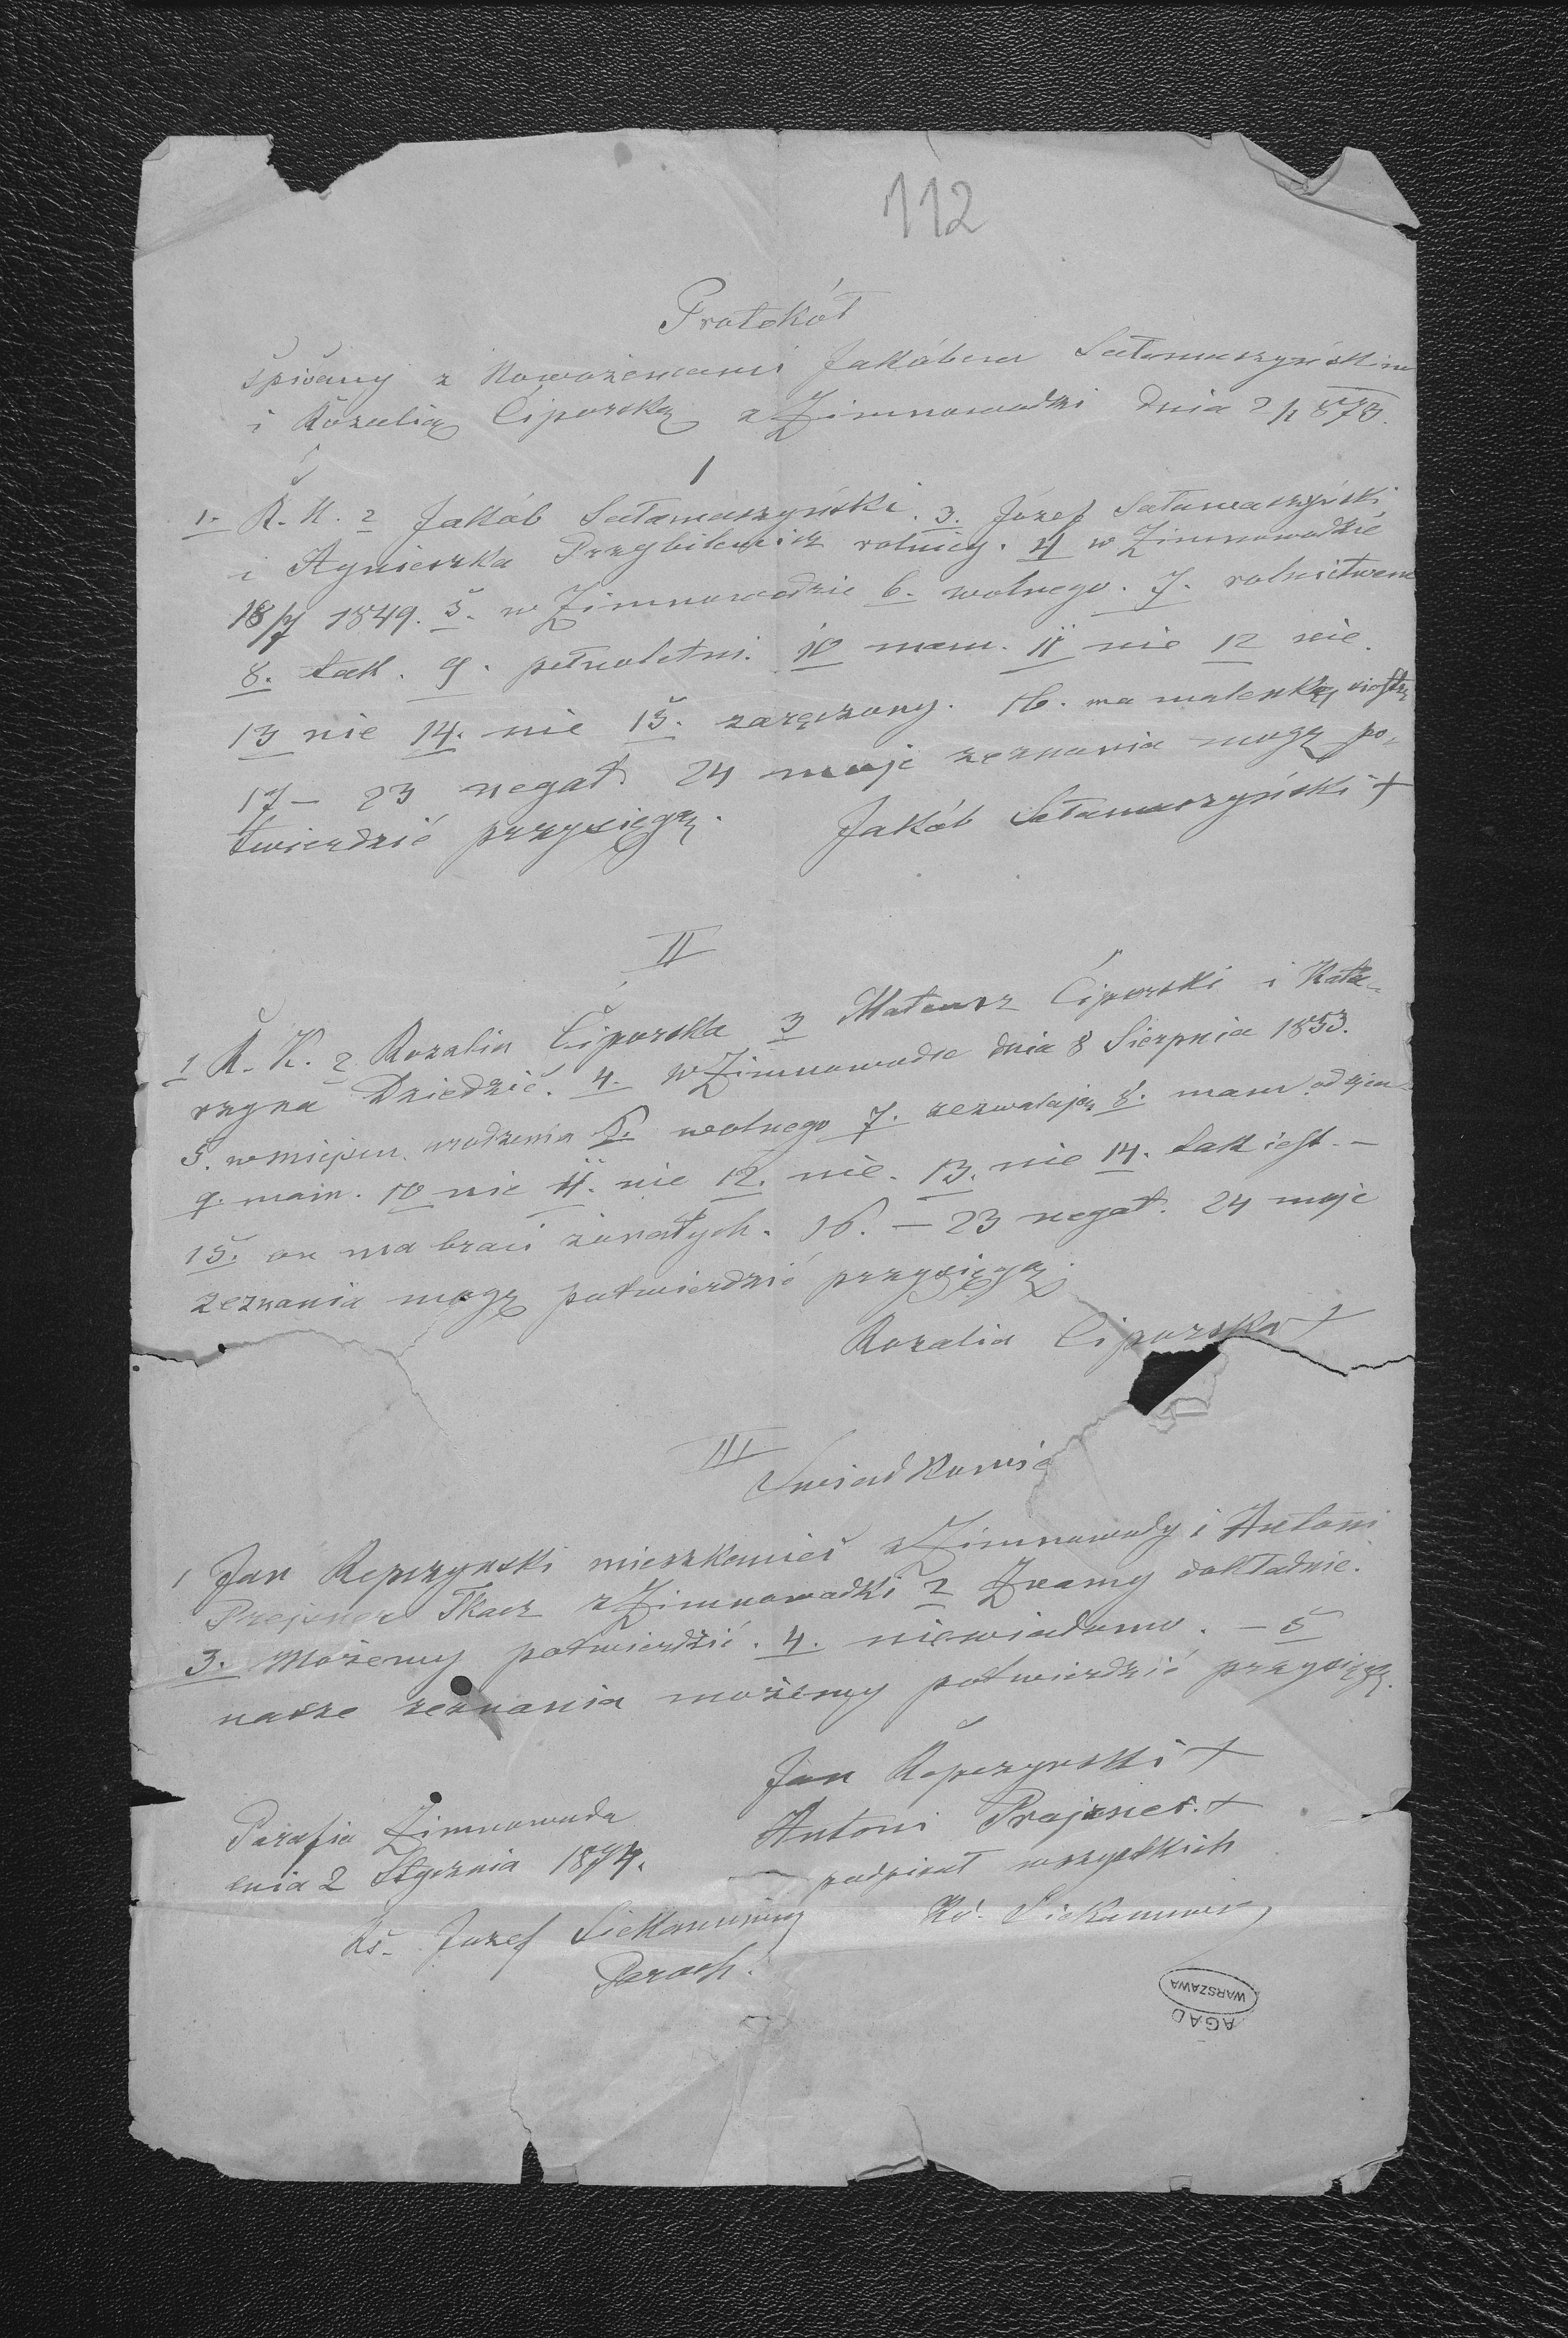 112
Protokół
spisany z Nowożeńcami Jakóbem Sałamaszyńskim
i Rozalią Ciporską z Zimnowodki dnia 2/1 873.
I
1. R. K. 2 Jakób Sałamaszyński. 3. Józef Sałamaszyński
i Agnieszka Przybilewicz rolnicy. 4 w Zimnowodzie
18/7 1849. 5. w Zimnowodzie 6. wolnego. 7. rolnictwem
8. tak. 9. pełnoletni. 10 mam. 11 nie 12 nie.
13 nie 14. nie 15. zaręczony. 16. ma maleńką siostrę
17 – 23 negat. 24 moje zeznania mogę po-
twierdzić przysięgą. Jakób Sałamaszyński +
II
1 R. K. 2 Rozalia Ciporska 3 Mateusz Ciporski i Kata-
rzyna Dziedzić. 4. w Zimnowodzie dnia 8 Sierpnia 1853.
5. w miejscu urodzenia 6. wolnego 7. zezwalają 8. mam od ojca
9. mam. 10 nie 11. nie 12. nie. 13. nie 14. tak jest. –
15. on ma braci żonatych. 16. – 23 negat. 24 moje
zeznania mogę potwierdzić przysięgą.
Rozalia Ciporska +
III
Świadkowie
1 Jan Repczynski mieszkaniec z Zimnowody i Antoni
Prejzner Tkacz z Zimnowodki 2 Znamy dokładnie.
3. Możemy potwierdzić. 4. niewiadomo. – 5
nasze zeznania możemy potwierdzić przysięgą.
Jan Repczynski +
Antoni Prejzner. +
podpisał wszystkich
Parafia Zimnowoda
dnia 2 Stycznia 1874.
Ks. Jozef
Ks.
Paroch.
WARSZAWA
AGAD